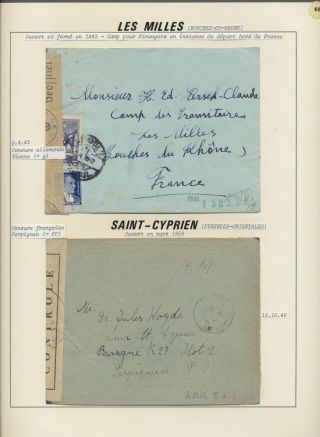 LES MILLES (BOUCHES-DU-RHONE)
Ouvert et fermé en 1942 - Camp pour étrangers en instance de départ hors de France
Geöffnet
Monsieur H. Ed.
Camp des
des Milles
Bouches du Rhône
France
2.4.42
Censure allemande
Vienne (= g)
SAINT-CYPRIEN (PYRENEES-ORIENTALES)
Ouvert en mars 1939
Censure française
Perpignan (= PC)
CONTROLE
F. M
Mr.
Dr. Jules
St Cyprien
Baraque K27 Ilot 2
Perpignan P. O
15.10.40